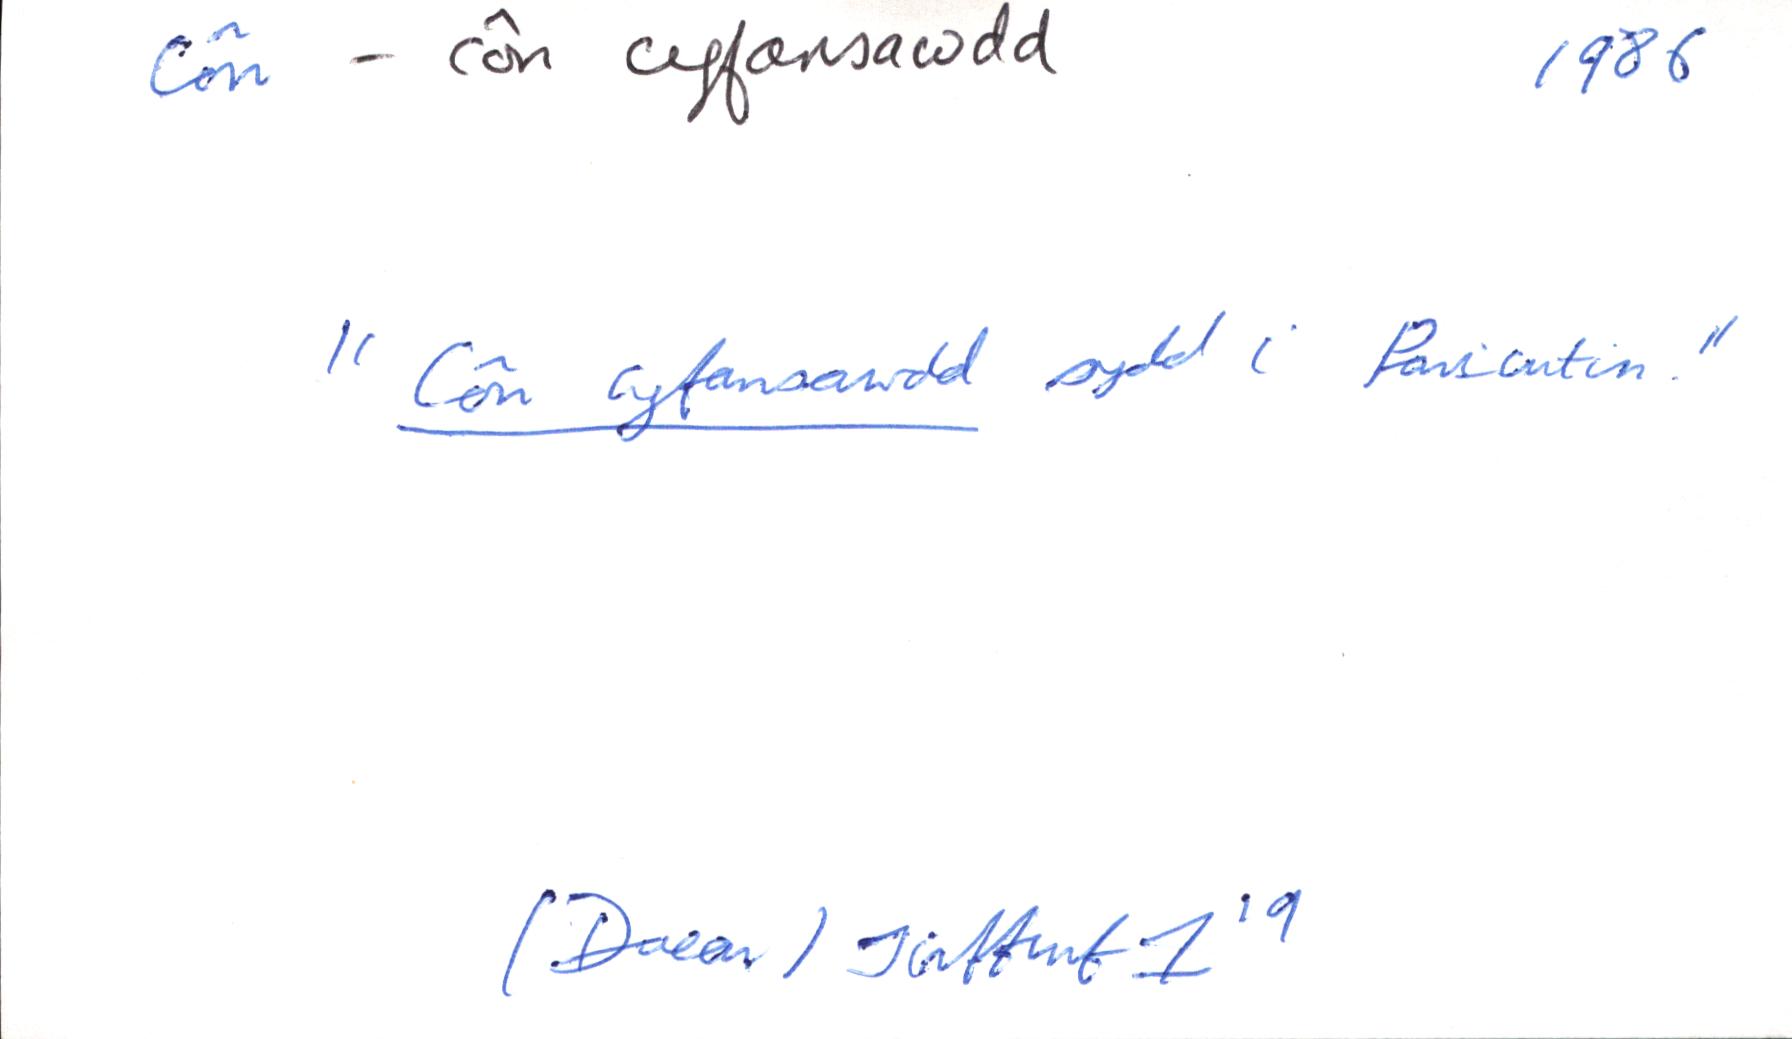 Côn - côn cyfansawdd 1986
"Côn cyfansawdd sydd i Paricutin."
(Daear) Tirffurf 1 19